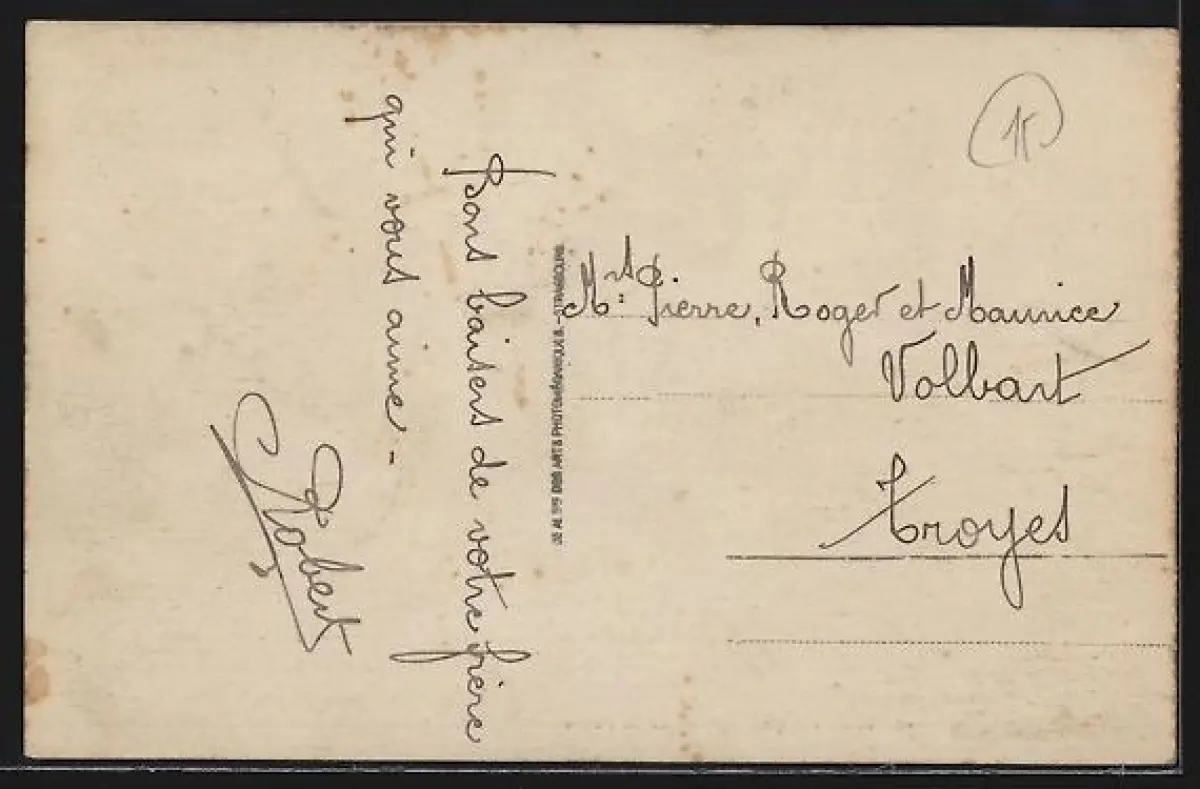 Bons baisers de votre frère
qui vous aime -
Robert
Mrs Pierre, Roger et Maurice
Volbart
Troyes
DES ARTS PHOTOMÉCANIQUES. - STRASBOURG
15